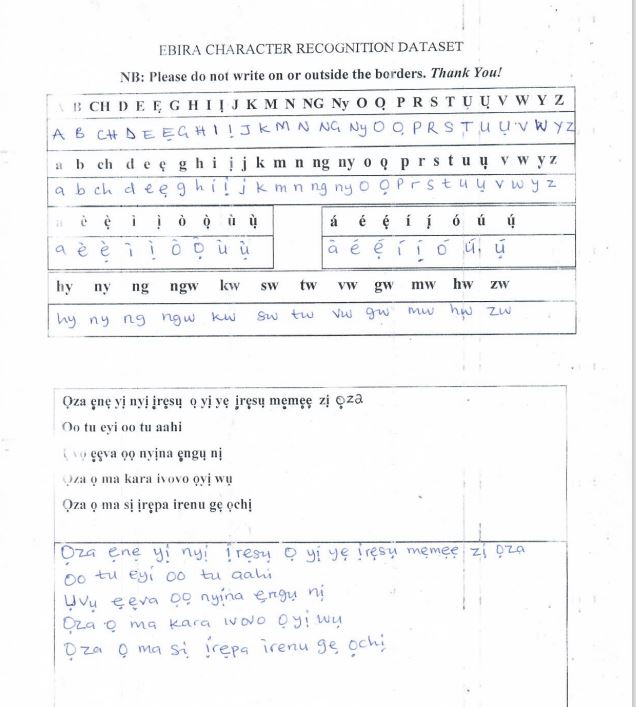 EBIRA CHARACTER RECOGNITION DATASET
NB: Please do not write on or outside the borders. Thank You!
A B CH D E Ẹ G H I Ị J K M N NG Ny O Ọ P R S T U Ụ V W Y Z
A B CH D E Ẹ G H I Ị J K M N NG Ny O Ọ P R S T U Ụ V W Y Z
a b ch d e ẹ g h i ị j k m n ng ny o ọ p r s t u ụ v w y z
a b ch d e ẹ g h i ị j k m n ng ny o ọ p r s t u ụ v w y z
a è ẹ̀ ì ị̀ ò ọ̀ ù ụ̀ á é ẹ́ í ị́ ó ú ụ́
a è ẹ̀ ì ị̀ ò ọ̀ ù ụ̀ à é ẹ́ í ị́ ó ú ụ́
hy ny ng ngw kw sw tw vw gw mw hw zw
hy ny ng ngw kw sw tw vw gw mw hw zw
Ọza ẹnẹ yị nyị ịrẹsụ ọ yị yẹ ịrẹsụ mẹmẹẹ zị ọza
Oo tu eyi oo tu aahi
ẹẹva ọọ nyịna ẹngụ nị
Ọza ọ ma kara ivovo ọyị wụ
Ọza ọ ma sị ịrẹpa irenu gẹ ọchị
Ọza ẹnẹ yị nyị ịrẹsụ ọ yị yẹ ịrẹsụ mẹmẹẹ zị ọza
Oo tu eyi oo tu aahi
Ụvụ ẹẹva ọọ nyịna ẹngụ nị
Ọza ọ ma kara ivovo ọyị wụ
Ọza ọ ma sị ịrẹpa irenu gẹ ọchị